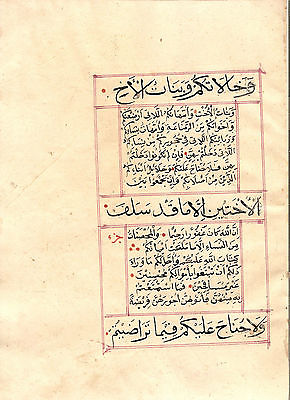 وخالاتكم وبنات الأخ
وبنات الأخت وأمهاتكم اللاتي أرضعنكم
وأخواتكم من الرضاعة وأمهات نسائكم
وربائبكم اللاتي في حجوركم من نسائكم
اللاتي دخلتم بهن فإن لم تكونوا دخلتم
بهن فلا جناح عليكم وحلائل أبنائكم
الذين من أصلابكم وأن تجمعوا بين
الأختين إلا ما قد سلف
إن الله كان غفورا رحيما والمحصنات
جزء
من النساء إلا ما ملكت أيمانكم
كتاب الله عليكم وأحل لكم ما وراء
ذلكم أن تبتغوا بأموالكم محصنين
غير مسافحين فما استمتعتم
به منهن فآتوهن أجورهن فريضة
ولا جناح عليكم فيما تراضيتم